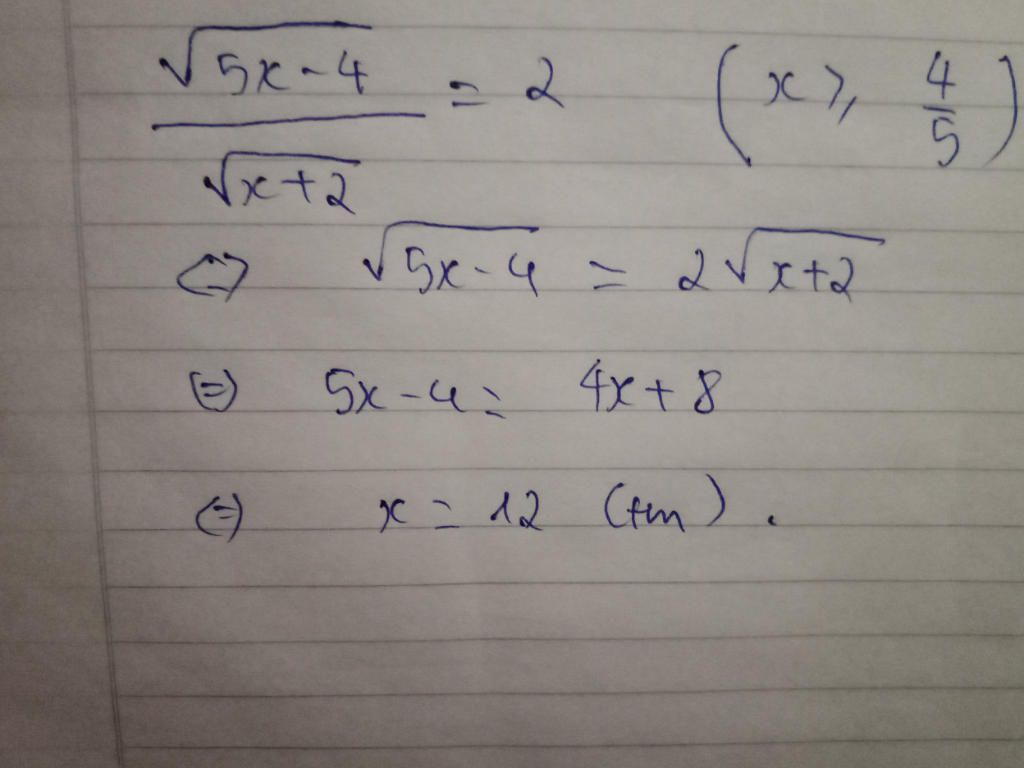 √(5x-4) / √(x+2) = 2 (x ⩾ 4/5)
⇔ √(5x-4) = 2√(x+2)
⇔ 5x-4 = 4x+8
⇔ x = 12 (tm).